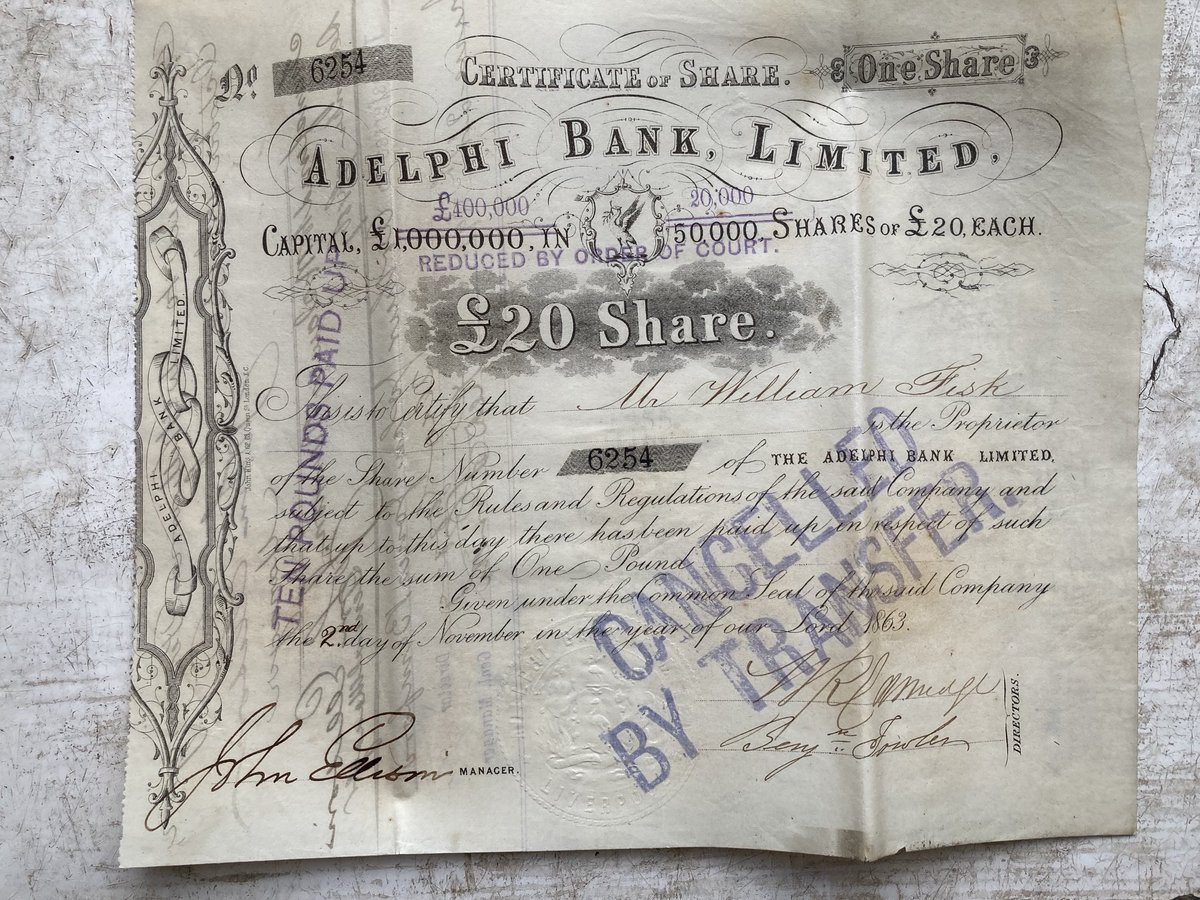 No. 6254
CERTIFICATE OF SHARE.
One Share
ADELPHI BANK, LIMITED,
£400,000
20,000
CAPITAL, £1,000,000, IN 50,000 SHARES OF £20, EACH.
REDUCED BY ORDER OF COURT.
£20 Share.
This is to Certify that Mr William Fisk
is the Proprietor
of the Share Number 6254 of THE ADELPHI BANK LIMITED,
subject to the Rules and Regulations of the said Company and
that up to this day there has been paid up in respect of such
Share the sum of One Pound
Given under the Common Seal of the said Company
the 2nd day of November in the year of our Lord 1863.
TEN POUNDS PAID UP
CANCELLED
BY TRANSFER.
ADELPHI BANK LIMITED
John Ellison MANAGER.
Benjn Fowler
DIRECTORS.